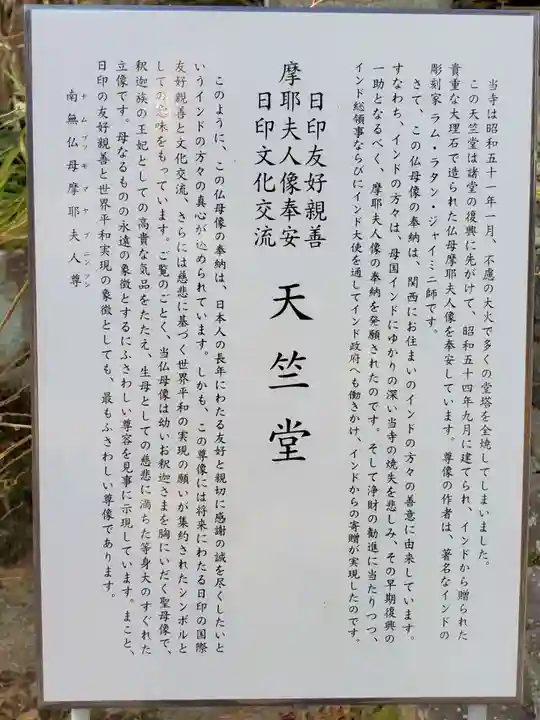 当寺は昭和五十一年一月、不慮の大火で多くの堂塔を全焼してしまいました。
この天竺堂は諸堂の復興に先がけて、昭和五十四年九月に建てられ、インドから贈られた
貴重な大理石で造られた仏母摩耶夫人像を奉安しています。尊像の作者は、著名なインドの
彫刻家 ラム・ラタン・ジャイミニ師です。
さて、この仏母像の奉納は、関西にお住まいのインドの方々の善意に由来しています。
すなわち、インドの方々は、母国インドにゆかりの深い当寺の焼失を悲しみ、その早期復興の
一助となるべく、摩耶夫人像の奉納を発願されたのです。そして浄財の勧進に当たりつつ、
インド総領事ならびにインド大使を通してインド政府へも働きかけ、インドからの寄贈が実現したのです。
日印友好親善
摩耶夫人像奉安
日印文化交流
天竺堂
このように、この仏母像の奉納は、日本人の長年にわたる友好と親切に感謝の誠を尽くしたいと
いうインドの方々の真心が込められています。しかも、この尊像には将来にわたる日印の国際
友好親善と文化交流、さらには慈悲に基づく世界平和の実現の願いが集約されたシンボルと
しての意味をもっています。ご覧のごとく、当仏母像は幼いお釈迦さまを胸にいだく聖母像で、
釈迦族の王妃としての高貴な気品をたたえ、生母としての慈悲に満ちた等身大のすぐれた
立像です。母なるものの永遠の象徴とするにふさわしい尊容を見事に示現しています。まこと、
日印の友好親善と世界平和実現の象徴としても、最もふさわしい尊像であります。
南無仏母摩耶夫人尊
ナムブツモマヤブニンソン